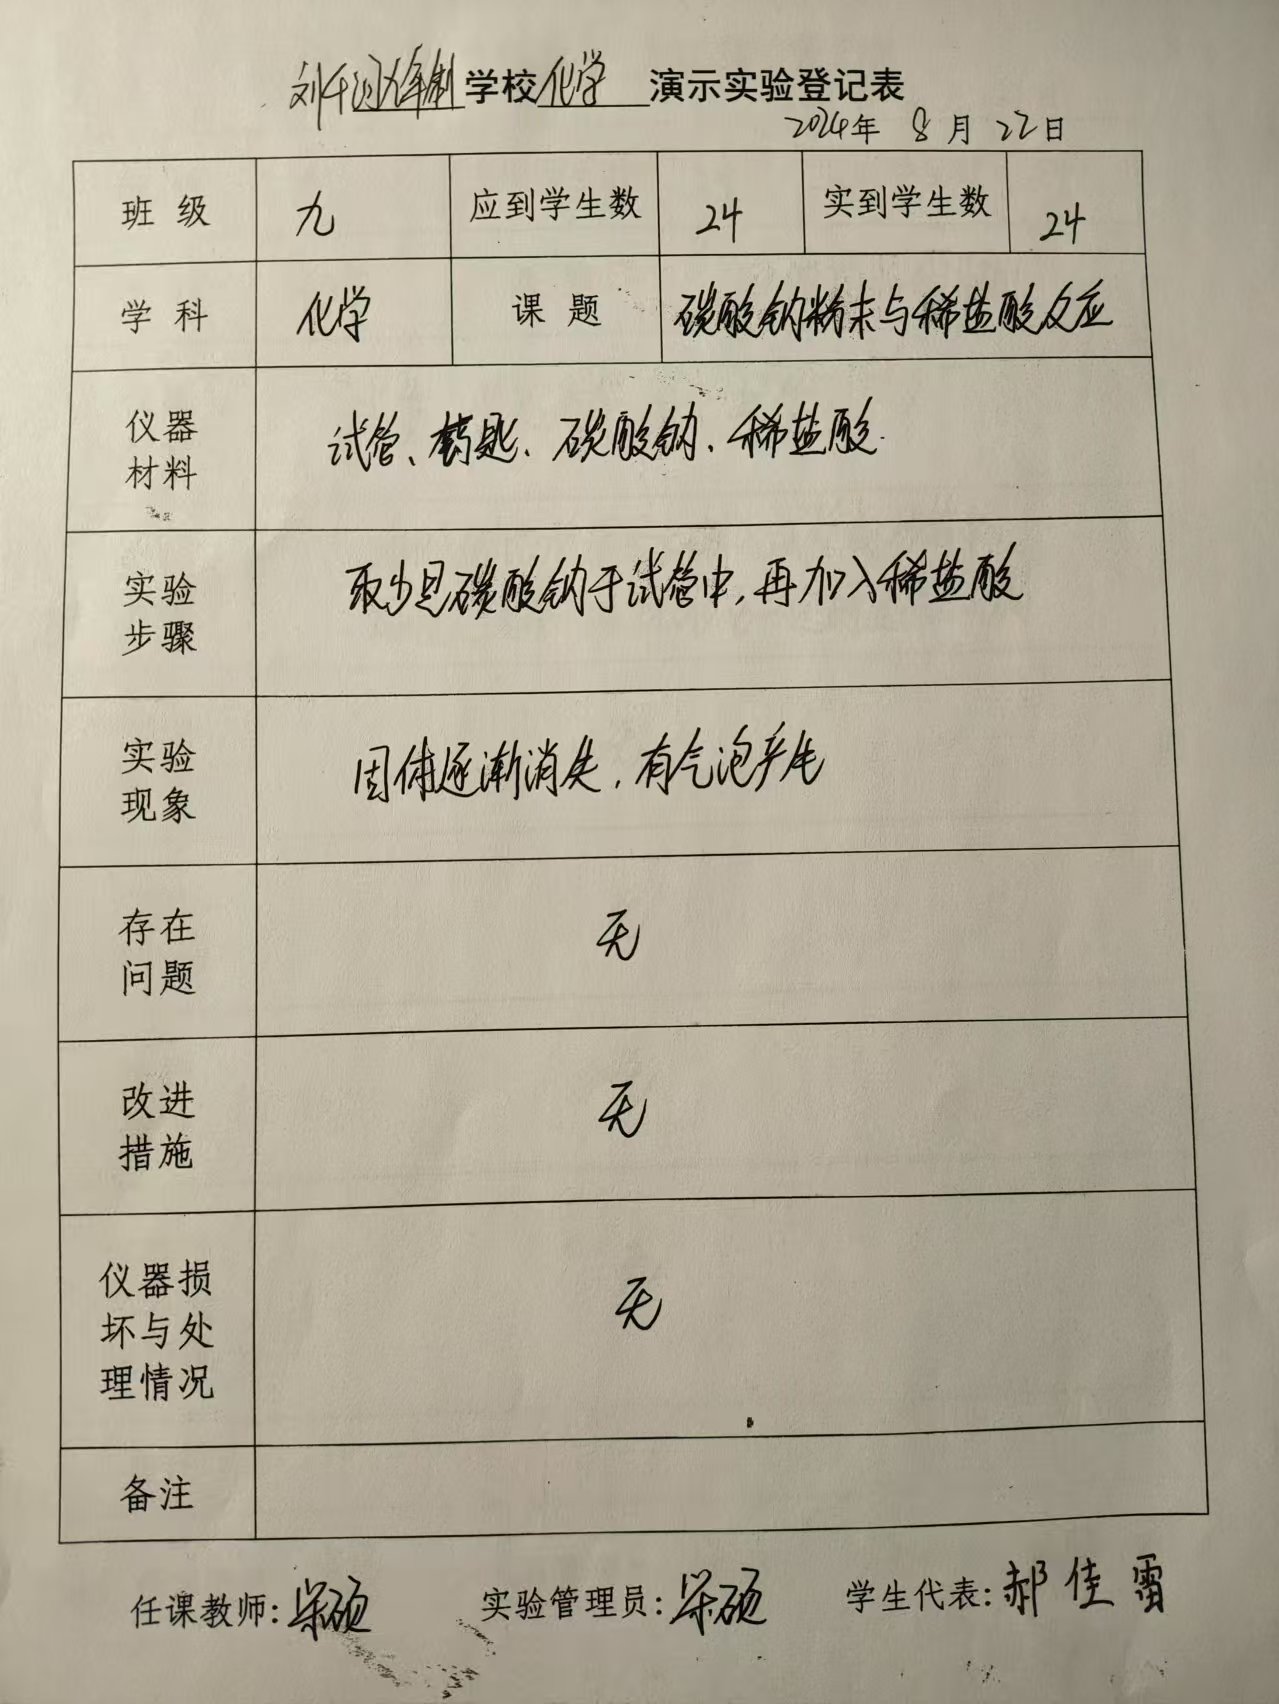 学校 化学 演示实验登记表
2024年 8月 22日
班 级 九 应到学生数 24 实到学生数 24
学 科 化学 课 题 碳酸钠粉末与稀盐酸反应
仪器
材料
试管、药匙、碳酸钠、稀盐酸.
实验
步骤
取少量碳酸钠于试管中,再加入稀盐酸
实验
现象
固体逐渐消失,有气泡产生
存在
问题
无
改进
措施
无
仪器损
坏与处
理情况
无
备注
任课教师: 实验管理员: 学生代表:郝佳雷